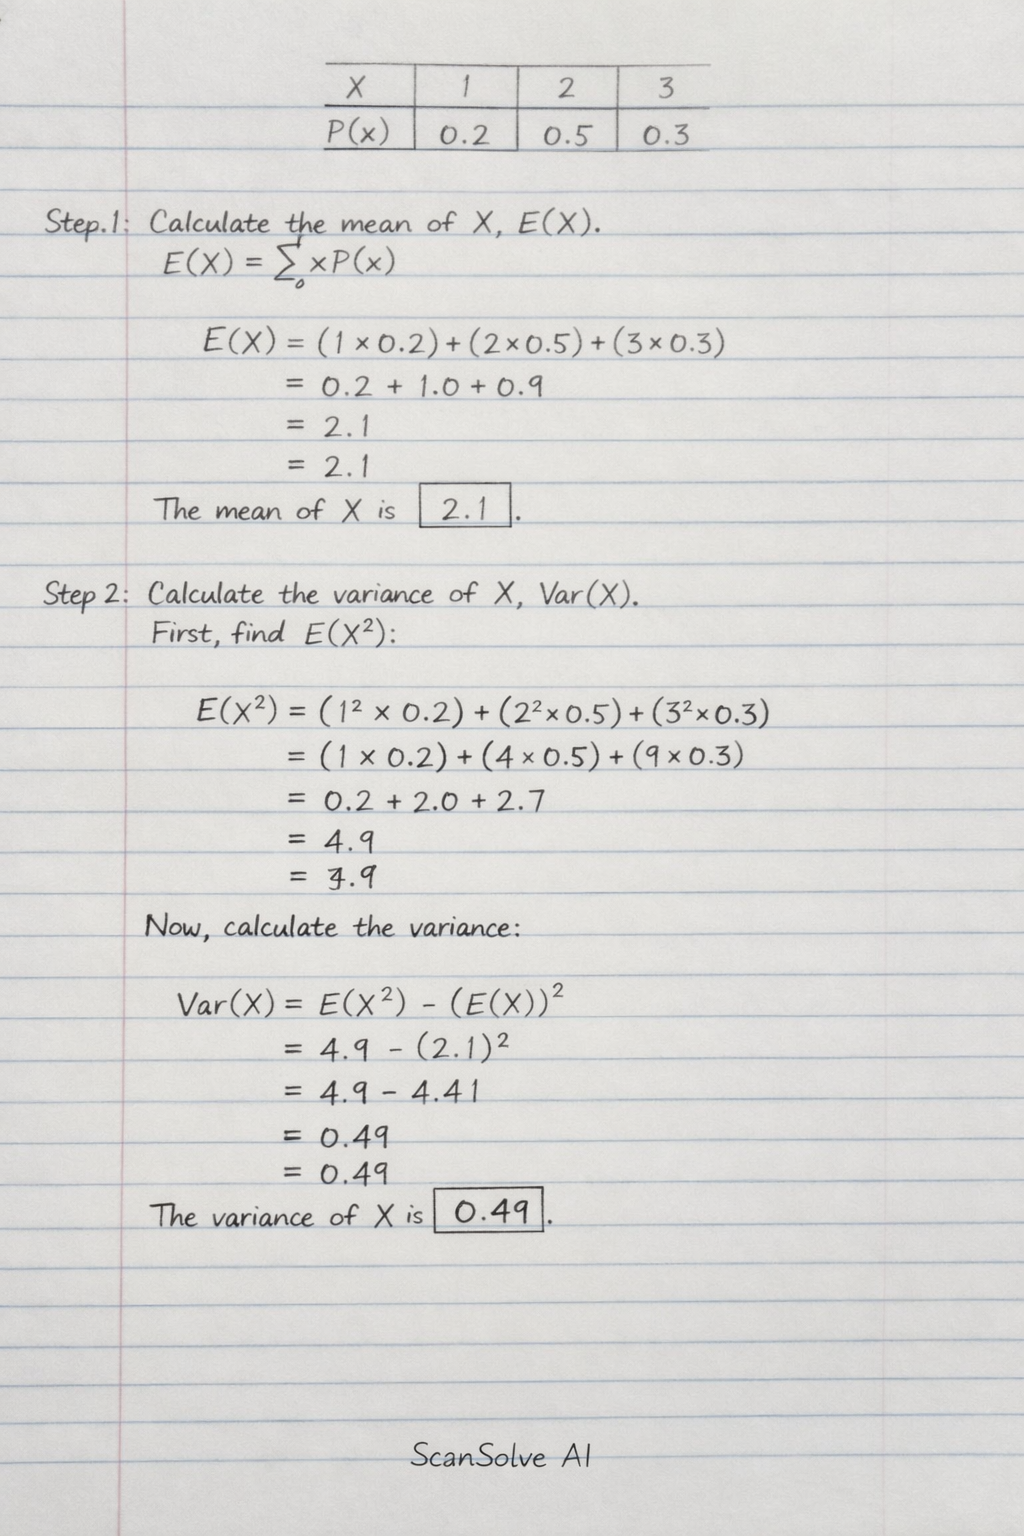 X 1 2 3
P(x) 0.2 0.5 0.3
Step.1: Calculate the mean of X, E(X).
E(X) = ∑₀ xP(x)
E(X) = (1 × 0.2) + (2 × 0.5) + (3 × 0.3)
= 0.2 + 1.0 + 0.9
= 2.1
= 2.1
The mean of X is 2.1.
Step 2: Calculate the variance of X, Var(X).
First, find E(X²):
E(X²) = (1² × 0.2) + (2² × 0.5) + (3² × 0.3)
= (1 × 0.2) + (4 × 0.5) + (9 × 0.3)
= 0.2 + 2.0 + 2.7
= 4.9
= .9
Now, calculate the variance:
Var(X) = E(X²) - (E(X))²
= 4.9 - (2.1)²
= 4.9 - 4.41
= 0.49
= 0.49
The variance of X is 0.49.
ScanSolve AI